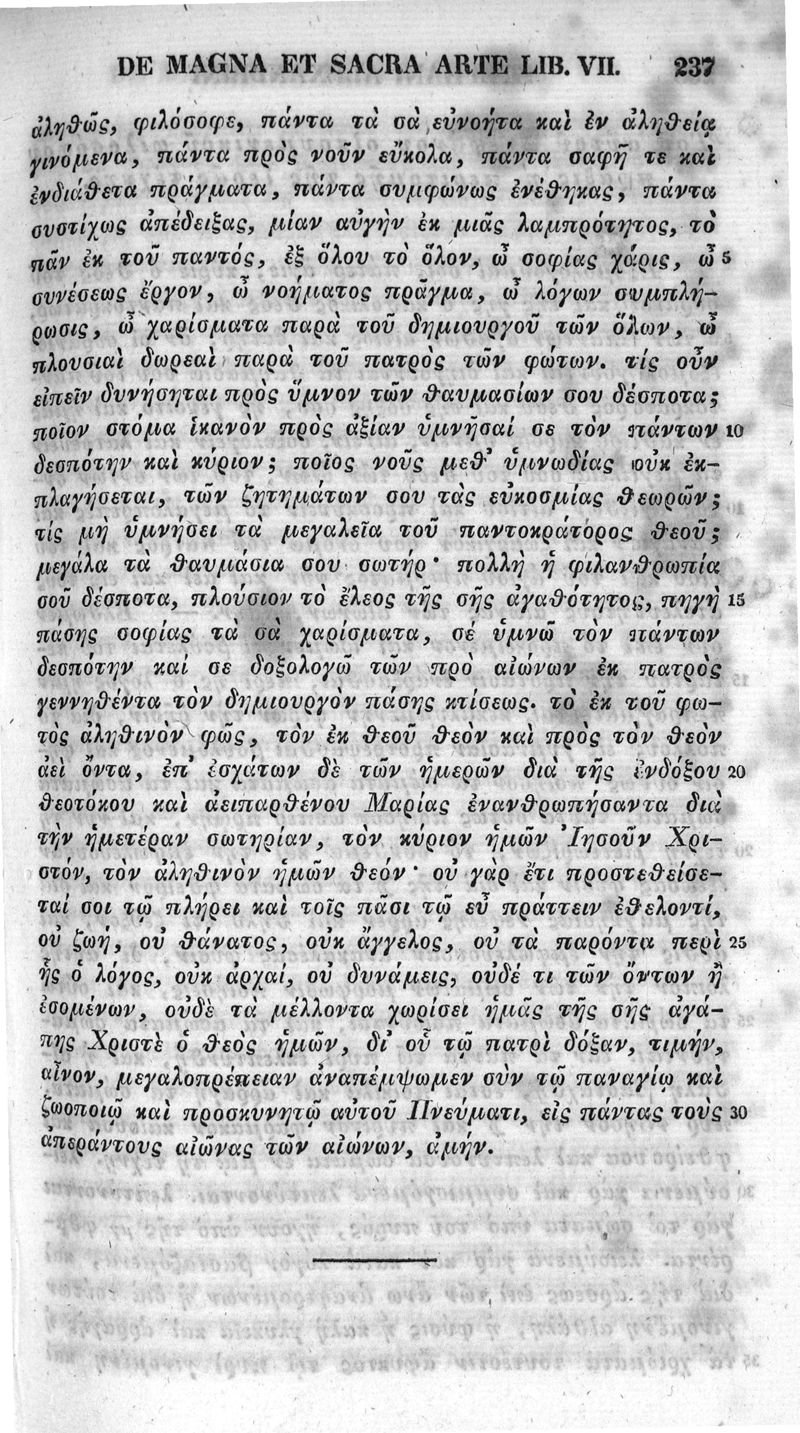 DE MAGNA ET SACRA ARTE LIB. VII. 237
ἀληθῶς, φιλόσοφε, πάντα τὰ σὰ εὐνοήτα καὶ ἐν ἀληθείᾳ
γινόμενα, πάντα πρὸς νοῦν εὔκολα, πάντα σαφῆ τε καὶ
ἐνδιάθετα πράγματα, πάντα συμφώνως ἐνέθηκας, πάντα
συστίχως ἀπέδειξας, μίαν αὐγὴν ἐκ μιᾶς λαμπρότητος, τὸ
πᾶν ἐκ τοῦ παντός, ἐξ ὅλου τὸ ὅλον, ὦ σοφίας χάρις, ὦ 5
συνέσεως ἔργον, ὦ νοήματος πρᾶγμα, ὦ λόγων συμπλή-
ρωσις, ὦ χαρίσματα παρὰ τοῦ δημιουργοῦ τῶν ὅλων, ὦ
πλουσιαὶ δωρεαὶ παρὰ τοῦ πατρὸς τῶν φώτων. τίς οὖν
εἰπεῖν δυνήσηται πρὸς ὕμνον τῶν θαυμασίων σου δέσποτα;
ποῖον στόμα ἱκανὸν πρὸς ἀξίαν ὑμνῆσαί σε τὸν πάντων 10
δεσπότην καὶ κύριον; ποῖος νοῦς μεθ’ ὑμνωδίας οὐκ ἐκ-
πλαγήσεται, τῶν ζητημάτων σου τὰς εὐκοσμίας θεωρῶν;
τίς μὴ ὑμνήσει τὰ μεγαλεῖα τοῦ παντοκράτορος θεοῦ;
μεγάλα τὰ θαυμάσια σου σωτήρ· πολλὴ ἡ φιλανθρωπία
σοῦ δέσποτα, πλούσιον τὸ ἔλεος τῆς σῆς ἀγαθότητος, πηγὴ 15
πάσης σοφίας τὰ σὰ χαρίσματα, σέ ὑμνῶ τὸν πάντων
δεσπότην καί σε δοξολογῶ τῶν πρὸ αἰώνων ἐκ πατρὸς
γεννηθέντα τὸν δημιουργὸν πάσης κτίσεως. τὸ ἐκ τοῦ φω-
τὸς ἀληθινὸν φῶς, τὸν ἐκ θεοῦ θεὸν καὶ πρὸς τὸν θεὸν
ἀεὶ ὄντα, ἐπ’ ἐσχάτων δὲ τῶν ἡμερῶν διὰ τῆς ἐνδόξου 20
θεοτόκου καὶ ἀειπαρθένου Μαρίας ἐνανθρωπήσαντα διὰ
τὴν ἡμετέραν σωτηρίαν, τὸν κύριον ἡμῶν Ἰησοῦν Χρι-
στόν, τὸν ἀληθινὸν ἡμῶν θεόν· οὐ γὰρ ἔτι προστεθείσε-
ταί σοι τῷ πλήρει καὶ τοῖς πᾶσι τῷ εὖ πράττειν ἐθελοντί,
οὐ ζωή, οὐ θάνατος, οὐκ ἄγγελος, οὐ τὰ παρόντα περὶ 25
ἧς ὁ λόγος, οὐκ ἀρχαί, οὐ δυνάμεις, οὐδέ τι τῶν ὄντων ἢ
ἐσομένων, οὐδὲ τὰ μέλλοντα χωρίσει ἡμᾶς τῆς σῆς ἀγά-
πης Χριστὲ ὁ θεὸς ἡμῶν, δι’ οὗ τῷ πατρὶ δόξαν, τιμήν,
αἶνον, μεγαλοπρέπειαν ἀναπέμψωμεν σὺν τῷ παναγίῳ καὶ
ζωοποιῷ καὶ προσκυνητῷ αὐτοῦ Πνεύματι, εἰς πάντας τοὺς 30
ἀπεράντους αἰῶνας τῶν αἰώνων, ἀμήν.